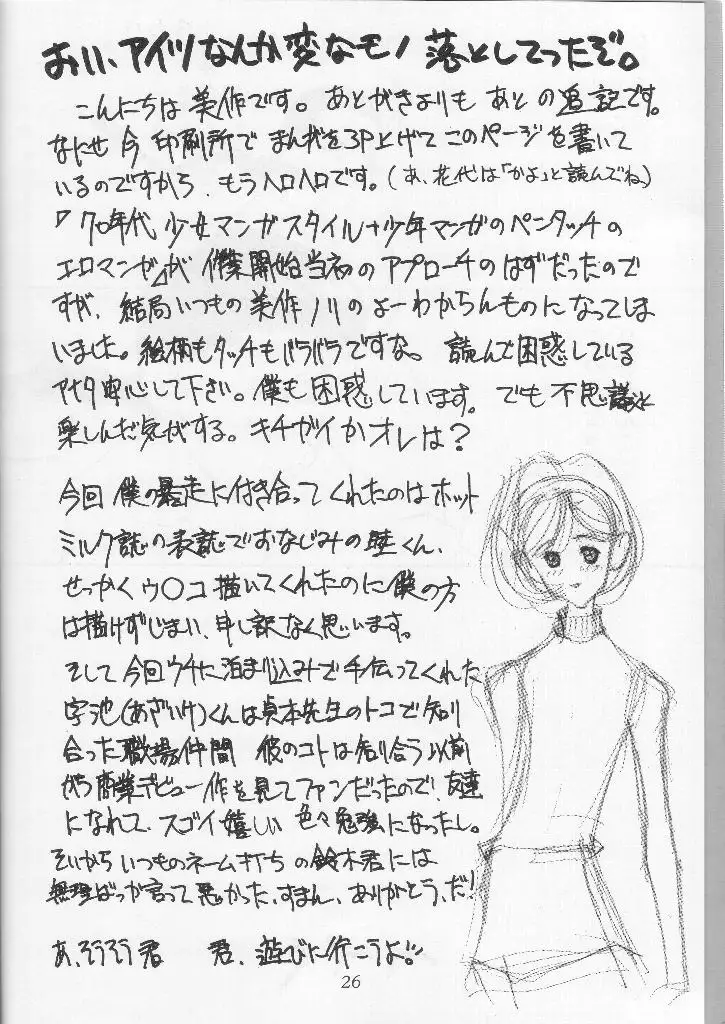 おい、アイツなんか変なモノ落としてったぞ。
こんにちは美作です。あとがきよりもあとの追記です。
なにせ今印刷所でまんがを3P上げてこのページを書いて
いるのですから、もうヘロヘロです。(あ、花代は「かよ」と読んでね。)
『70年代少女マンガスタイル+少年マンガのペンタッチの
エロマンガ』が作業開始当初のアプローチのはずだったので
すが、結局いつもの美作ノリのよーわからんものになってしま
いました。絵柄もタッチもバラバラですな。読んで困惑している
アナタ安心して下さい。僕も困惑しています。でも不思議と
楽しんだ気がする。キチガイかオレは?
今回僕の暴走に付き合ってくれたのはホット
ミルク誌の表誌でおなじみの睦くん、
せっかくウ○コ描いてくれたのに僕の方
は描けずじまい、申し訳なく思います。
そして今回ウチに泊まり込みで手伝ってくれた
字池(あざいけ)くんは貞本先生のトコで知り
合った職場仲間 彼のコトは知り合う以前
から商業デビュー作を見てファンだったので、友達
になれて、スゴイ嬉しい色々勉強になったし。
それからいつものネーム打ちの鈴木君には
無理ばっか言って悪かった、すまん、ありがとう、だ!
あ、そうそう君 君、遊びに行こうよ!!
26